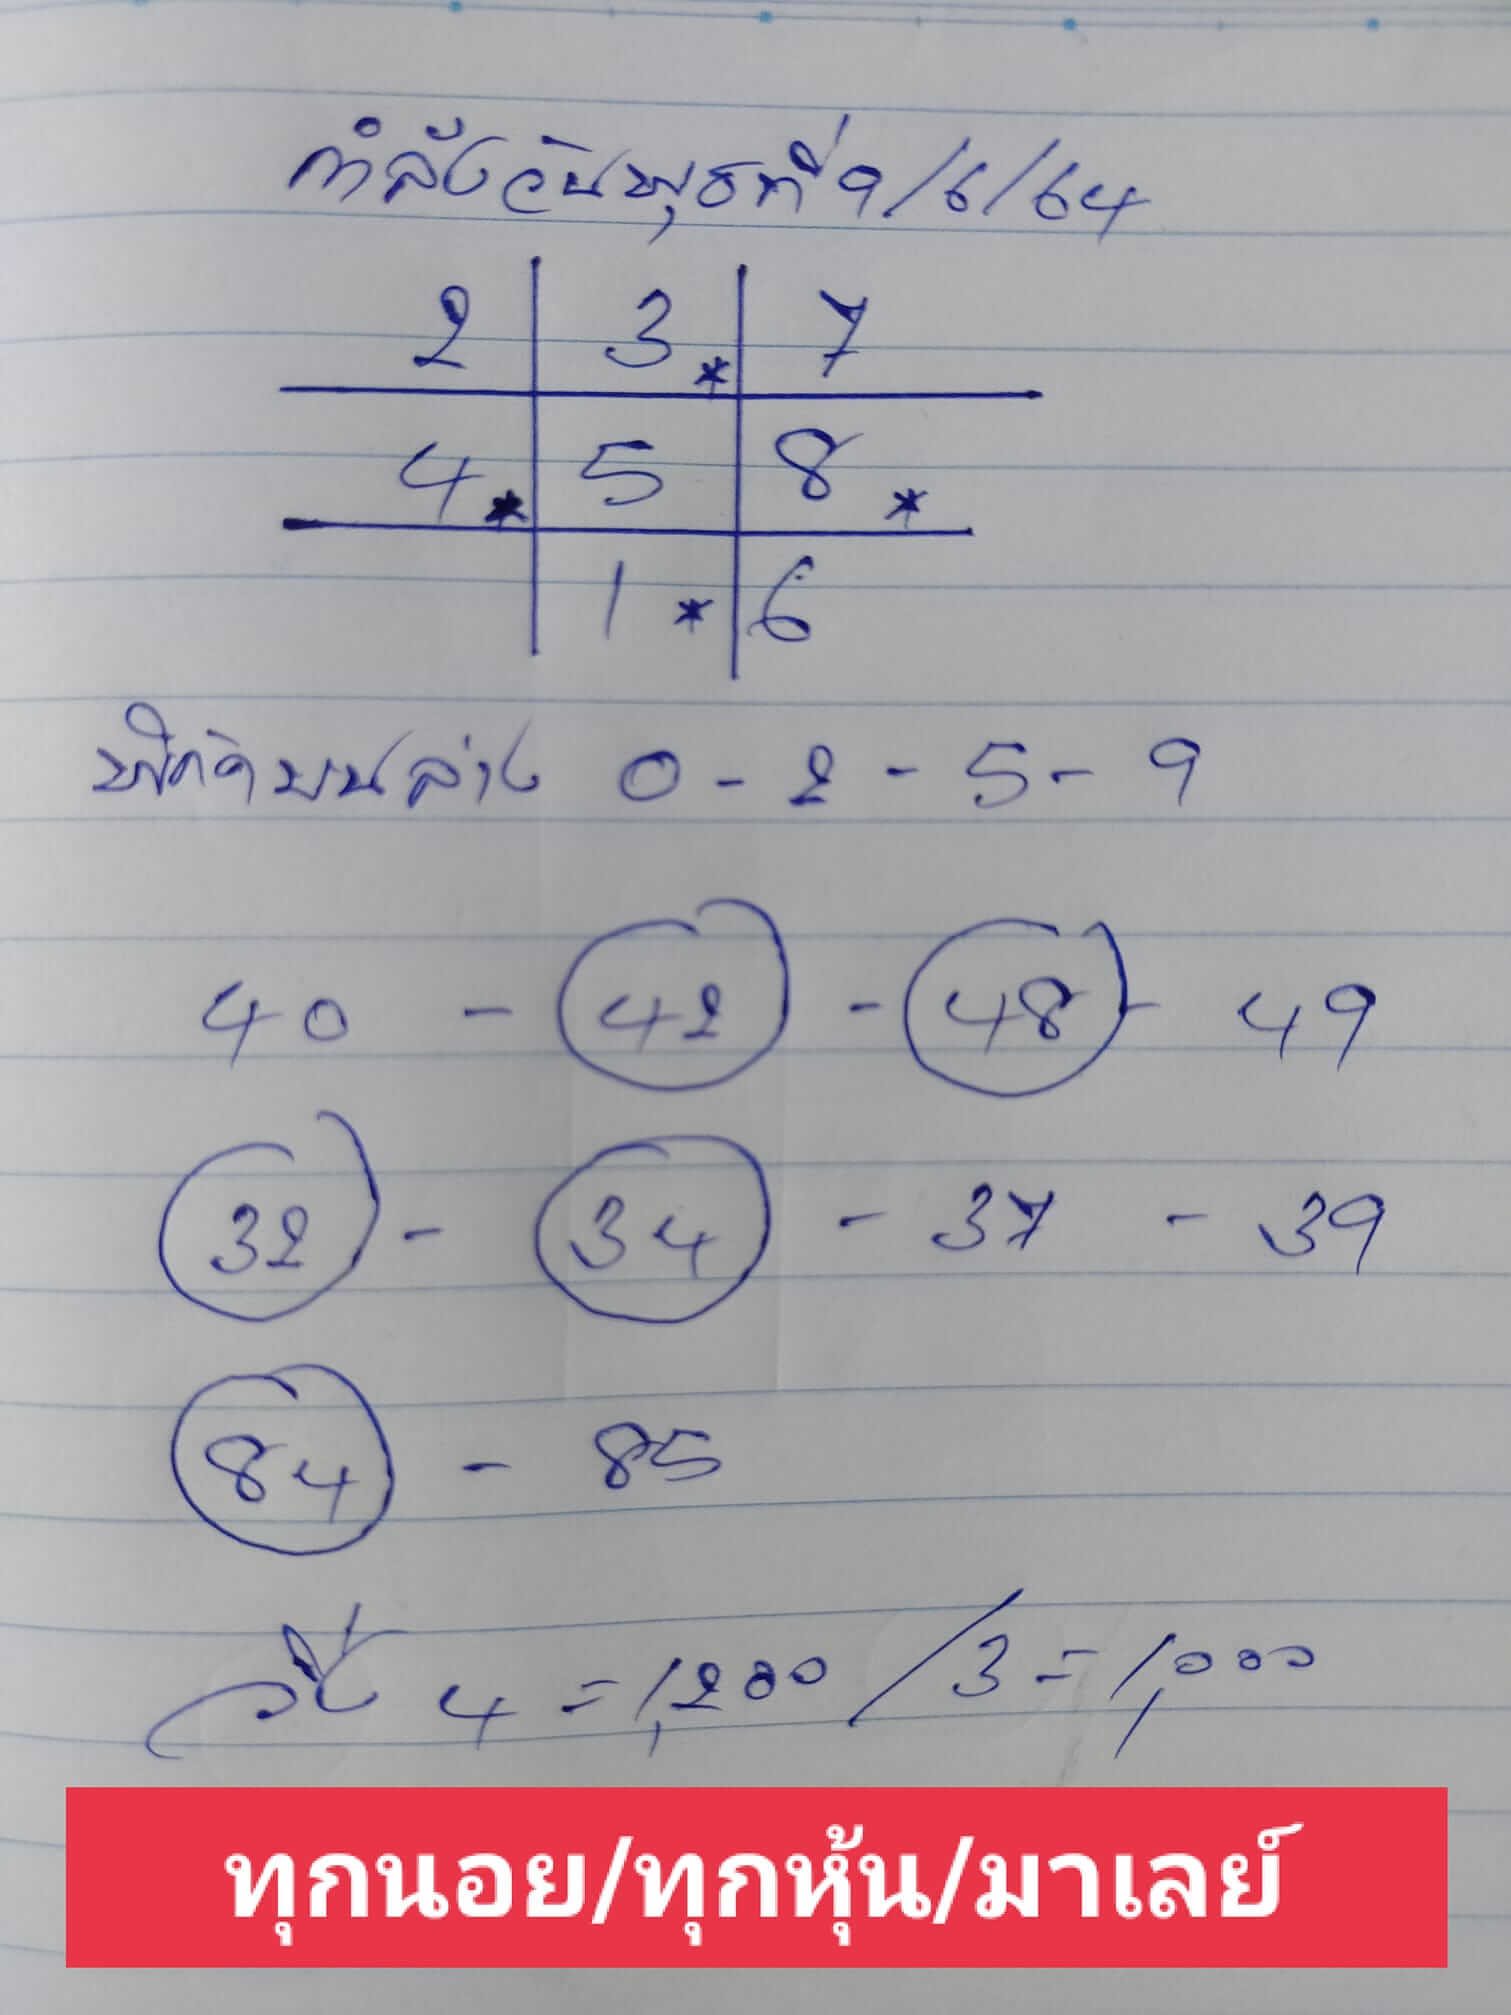 กำลังวันพุธที่ 9/6/64
2 3* 7
4* 5 8*
1* 6
พิกัดบนล่าง 0 - 2 - 5 - 9
40 - 42 - 48 - 49
32 - 34 - 37 - 39
84 - 85
4 = 1,200 / 3 = 1,000
ทุกนอย/ทุกหุ้น/มาเลย์